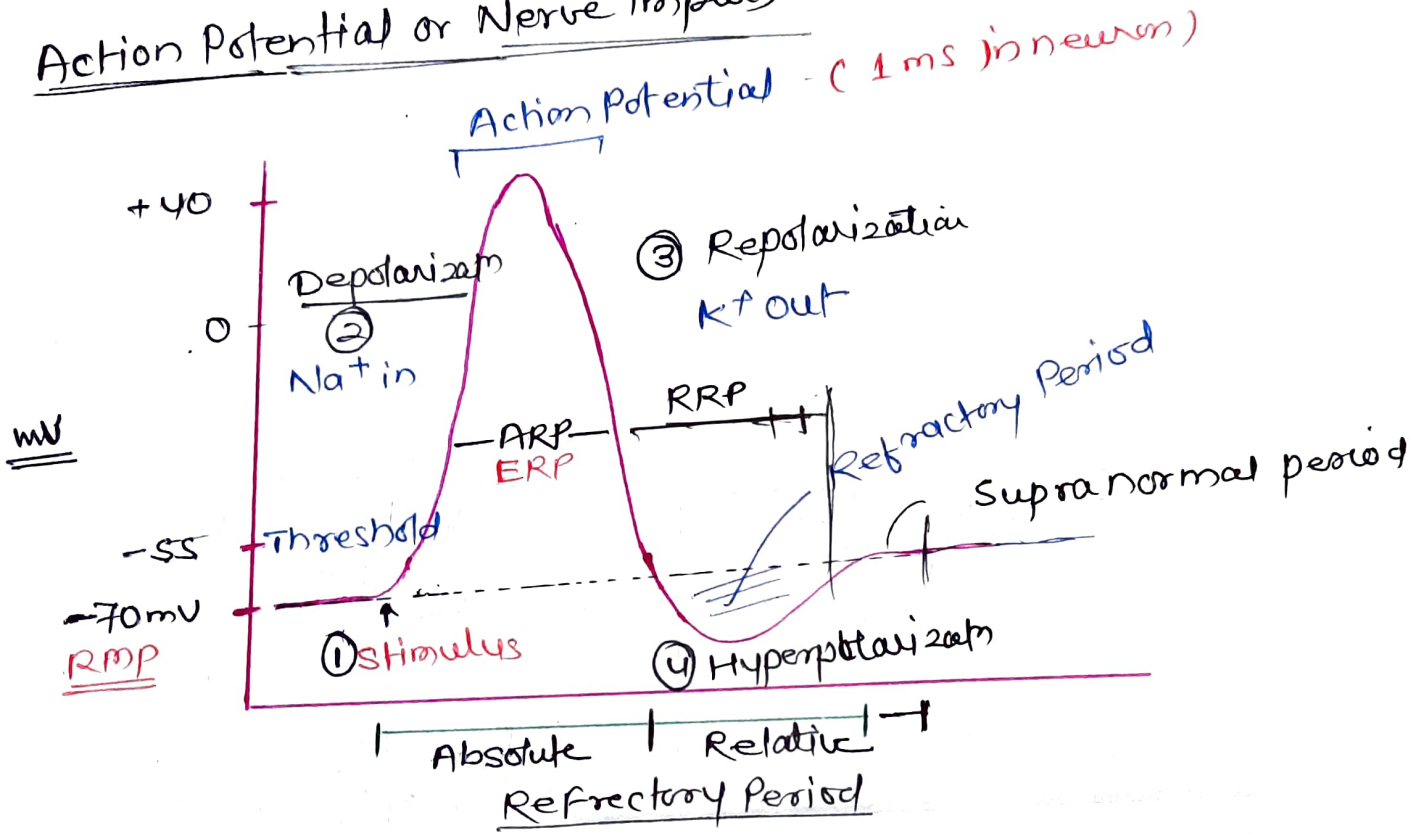 Action Potential or Nerve
Action Potential - (1 ms in neuron)
+40
Depolarizatn
2
Na+ in
3 Repolarization
K+ out
0
mV
ARP
ERP
RRP
Refractory Period
Supranormal period
-55
Threshold
-70mV
RMP
1 stimulus
4 Hyperpolarizatn
Absolute
Relative
Refrectory Period